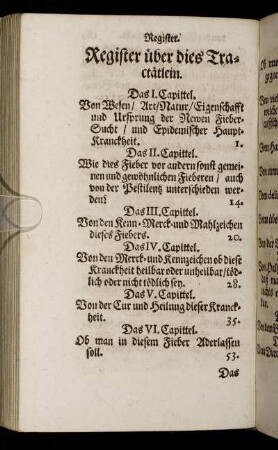 Register.
Register über dies Tra-
ctätlein.
Das I. Capittel.
Von Wesen/ Art/ Natur/ Eigenschafft
und Ursprung der Newen Fieber-
Sucht/ und Epidemischer Haupt-
Kranckheit. 1.
Das II. Capittel.
Wie dies Fieber vor andern sonst gemei-
nen und gewöhnlichen Fieberen/ auch
von der Pestilentz unterschieden wer-
den? 14.
Das III. Capittel.
Von den Kenn- Merck- und Mahlzeichen
dieses Fiebers. 20.
Das IV. Capittel.
Von den Merck- und Kennzeichen ob diese
Kranckheit heilbar oder unheilbar/ töd-
lich oder nicht tödlich sey. 28.
Das V. Capittel.
Von der Cur und Heilung dieser Kranck-
heit. 35.
Das VI. Capittel.
Ob man in diesem Fieber Aderlassen
soll. 53.
Das